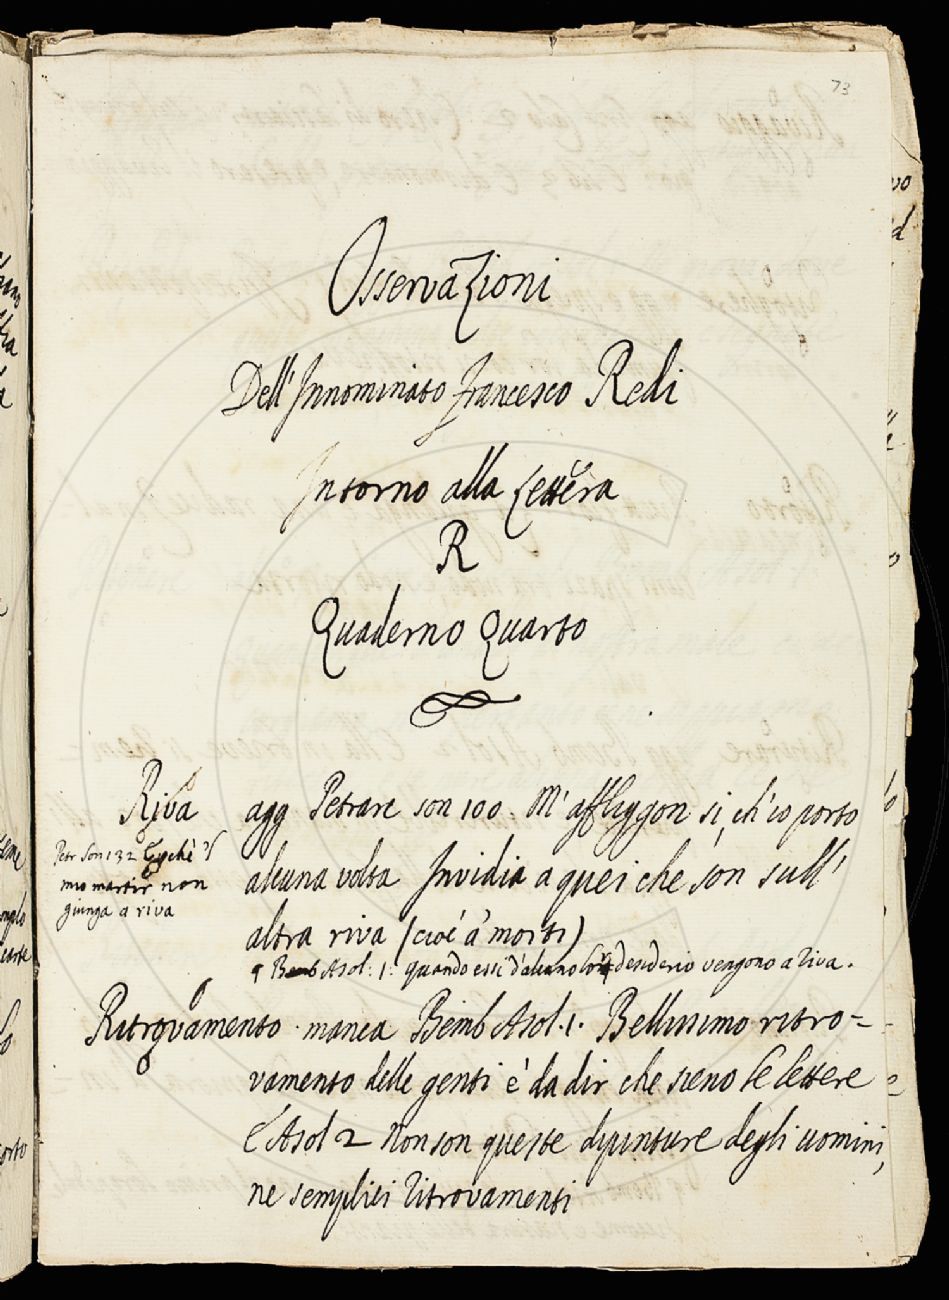 73
Osservazioni
Dell' Innominato Francesco Redi
Intorno alla Lettera
R
Quaderno Quarto
Riva agg Petrarc son 100. M' affliggon si, ch'io porto
alcuna volta Invidia a quei che son sull'
altra riva (cioè à morti)
Petr Son 132 E perchè 'l
mio martir non
giunga a riva
q Bemb Asol: 1: quando essi d'alcun loro desiderio vengono a riva.
Ritrovamento manca Bemb Asol. 1. Bellissimo ritro=
vamento delle genti è da dir che sieno le lettere
E Asol 2 Non son queste dipinture degli uomini,
ne semplici ritrovamenti